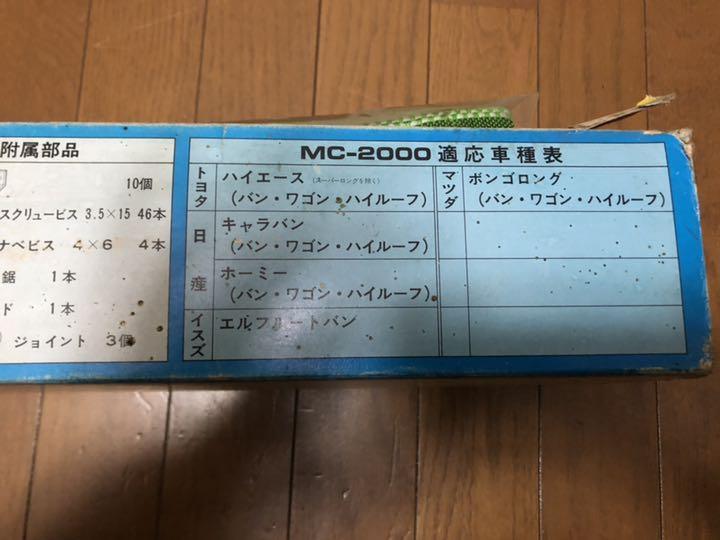 附属部品
10個
スクリュービス 3.5×15 46本
ナベビス 4×6 4本
鋸 1本
ド 1本
ジョイント 3個
MC-2000 適応車種表
トヨタ
ハイエース (スーパーロングを除く)
(バン・ワゴン・ハイルーフ)
マツダ
ボンゴロング
(バン・ワゴン・ハイルーフ)
日産
キャラバン
(バン・ワゴン・ハイルーフ)
ホーミー
(バン・ワゴン・ハイルーフ)
イスズ
エルフルートバン